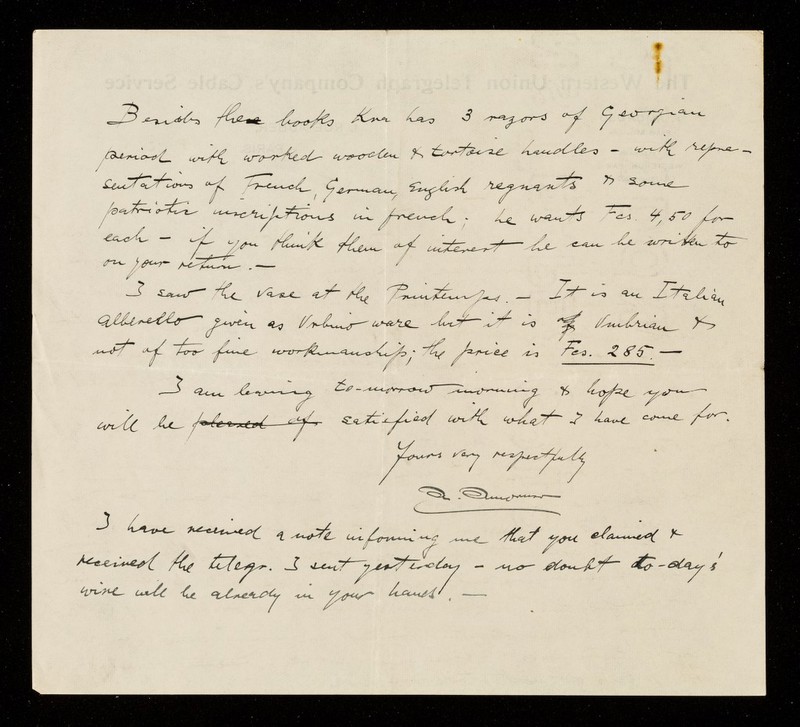 Besides these books Kra has 3 razors of Georgian
period with worked wooden & tortoise handles - with repre-
sentations of French, German, English regnants & some
patriotic inscriptions in french; he wants Fcs. 4,50 for
each - if you think them of interest he can be written to
on your return. -
I saw the vase at the Printemps. - It is an Italian
alberello given as Urbino ware but it is of Umbrian &
not of too fine workmanship; the price is Fcs. 285. -
I am leaving to-morrow morning & hope you
will be pleased of satisfied with what I have come for.
Yours very respectfully
I have received a note informing me that you claimed &
received the telegr. I sent yesterday - no doubt to-day's
wire will be already in your hands. -
The Western Union Telegraph Company's Cable Service